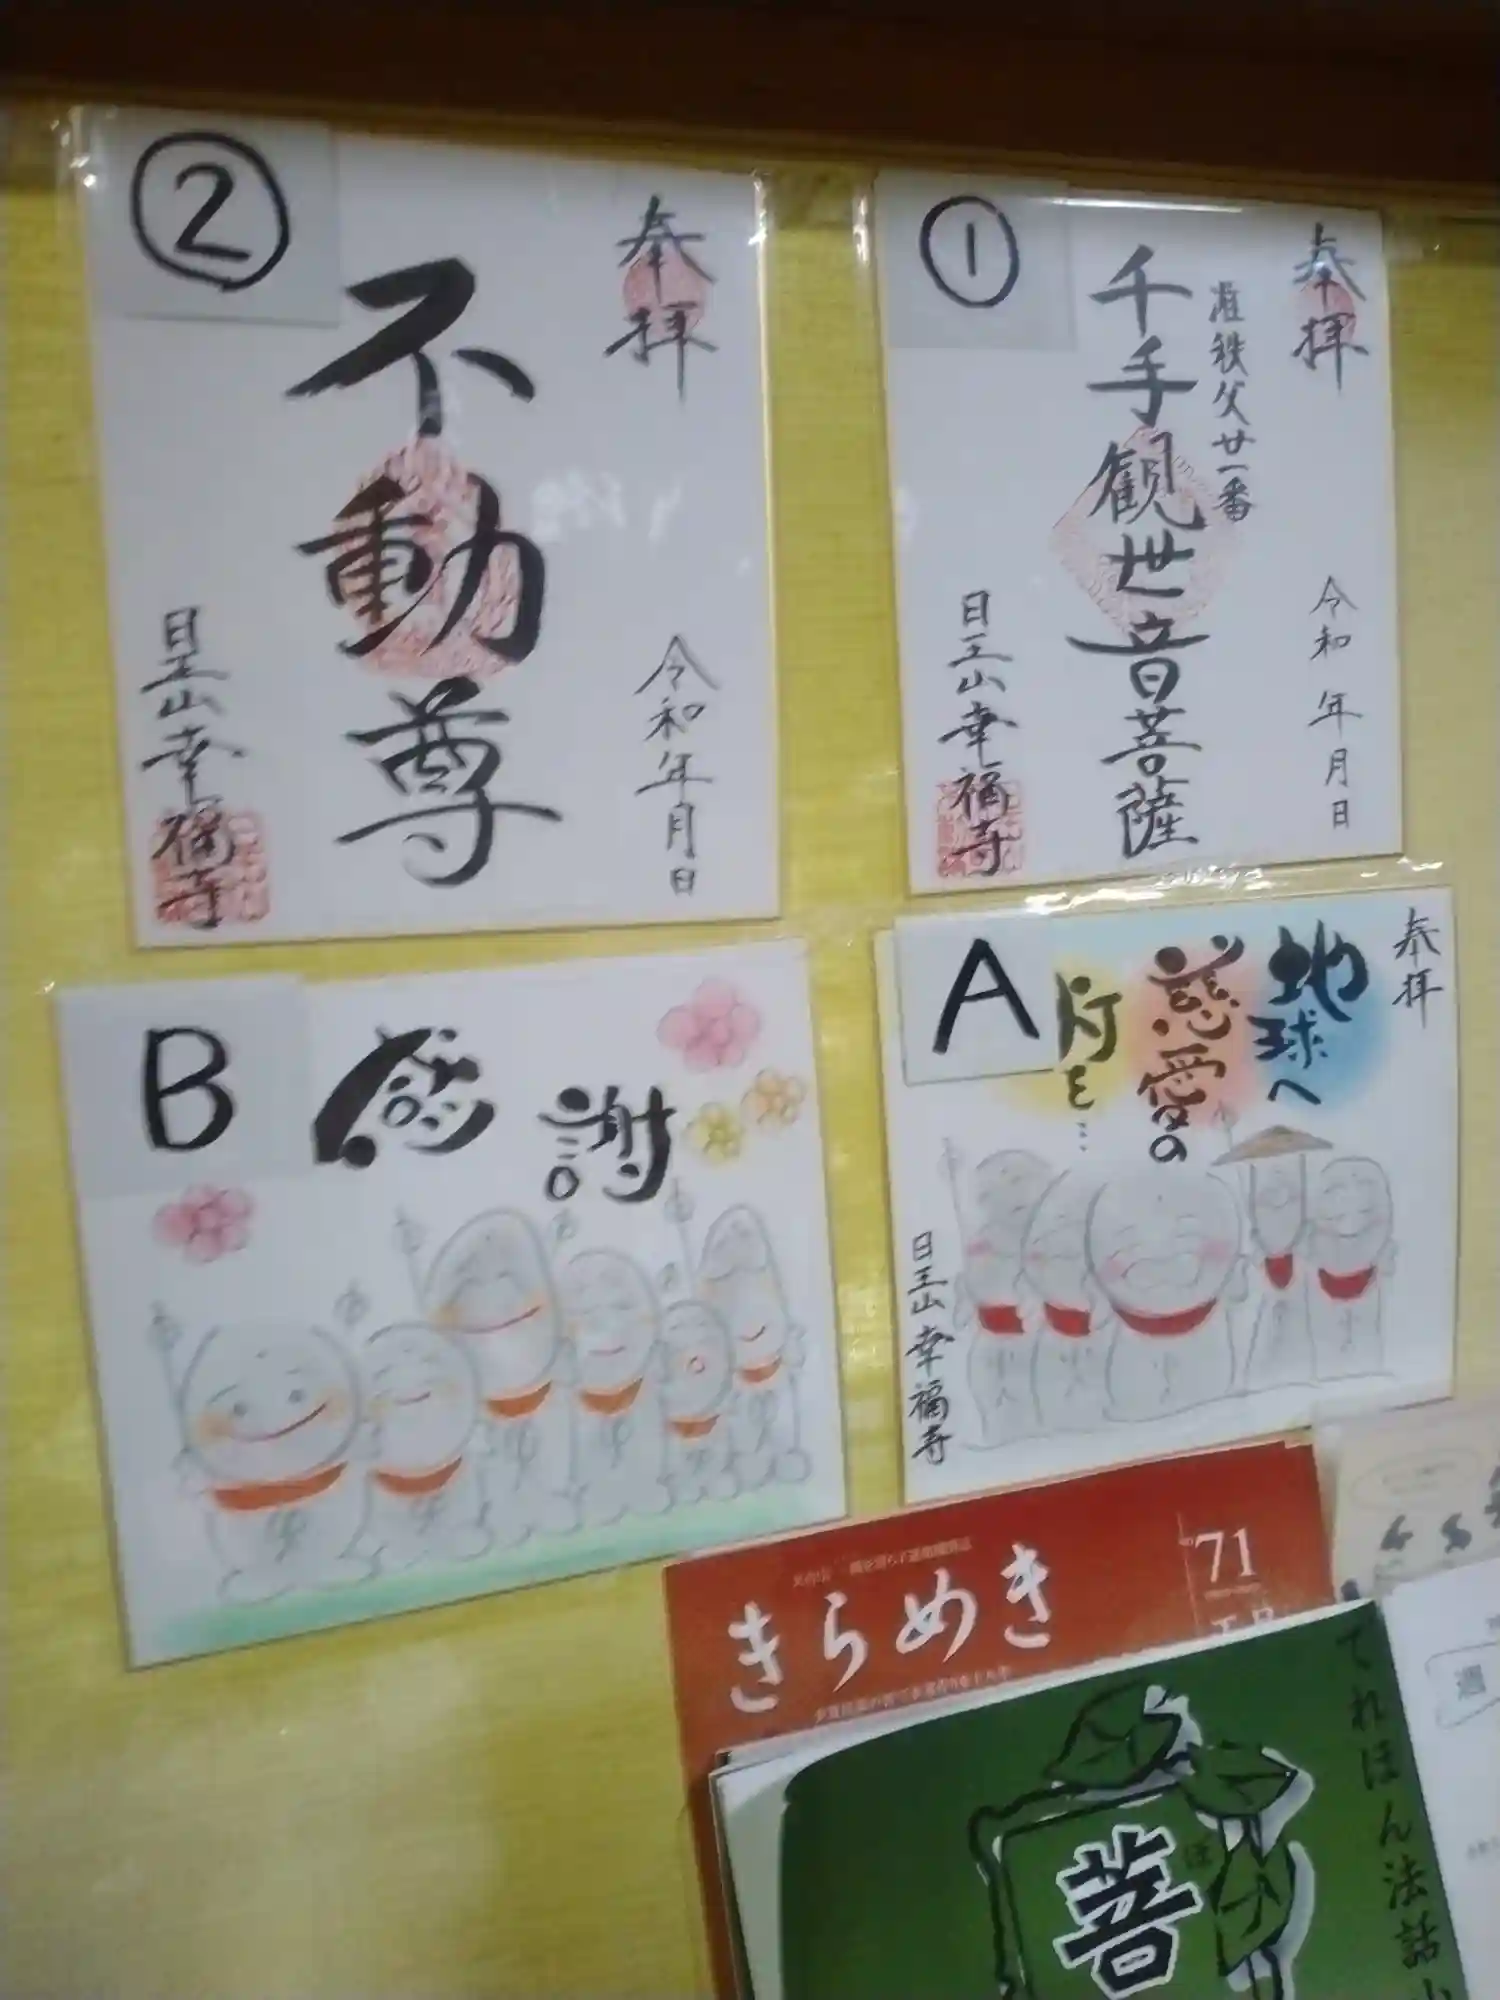 ①
奉拝
准秩父廿一番
千手観世音菩薩
令和 年 月 日
日王山幸福寺
②
奉拝
不動尊
令和 年 月 日
日王山幸福寺
A
奉拝
地球へ
慈愛の
灯を…
日王山幸福寺
B
感謝
きらめき
71
てれほん法話
菩
ぼ
週